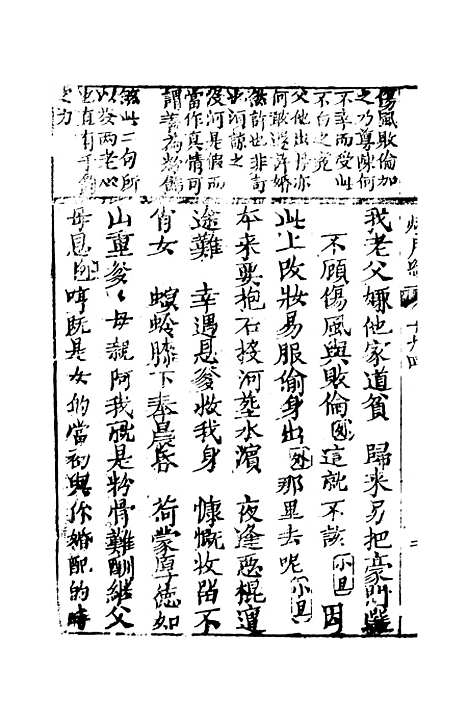 傷風敗倫加
之乃尊陳何
不幸而受此
不白之冤
父他出
何敢遂許婚
此河諒之
後河是假而
當作真情可
謂善為粉飾
無此三句所
以發兩老心
我老父嫌他家道貧　歸来另把豪門選
不顧傷風與敗倫外這就不該小旦因
此上改妝易服偷身出外那里去呢小旦
本来要抱石投河塟水濱　夜逢惡棍遭
途難　幸遇恩爹收我身　慷慨收留不
肖女　螟蛉膝下奉晨昏　荷蒙厚德如
山重爹〻母親阿我既是粉骨難酬繼父
母恩外呀既是女的當初與你婚配的時